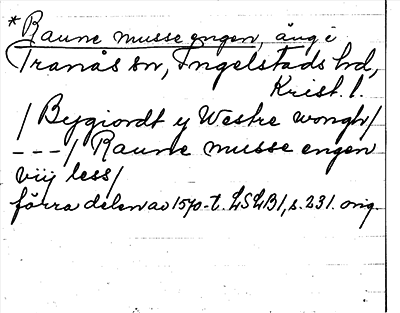 *Raune musse engen, äng i
Tranås sn, Ingelstads hd,
Krist. l.
/Bygiordt y Westre wongh/
---/Raune musse engen
viij less/
förra delen av 1570-t. LSLB1, s. 231. orig.